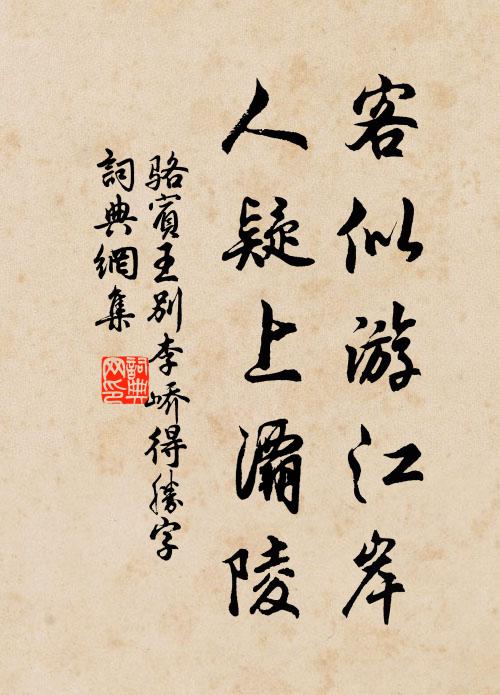 客似游江岸
人疑上灞陵
骆賓王别李峤得勝字
詞典網集
詞典网印